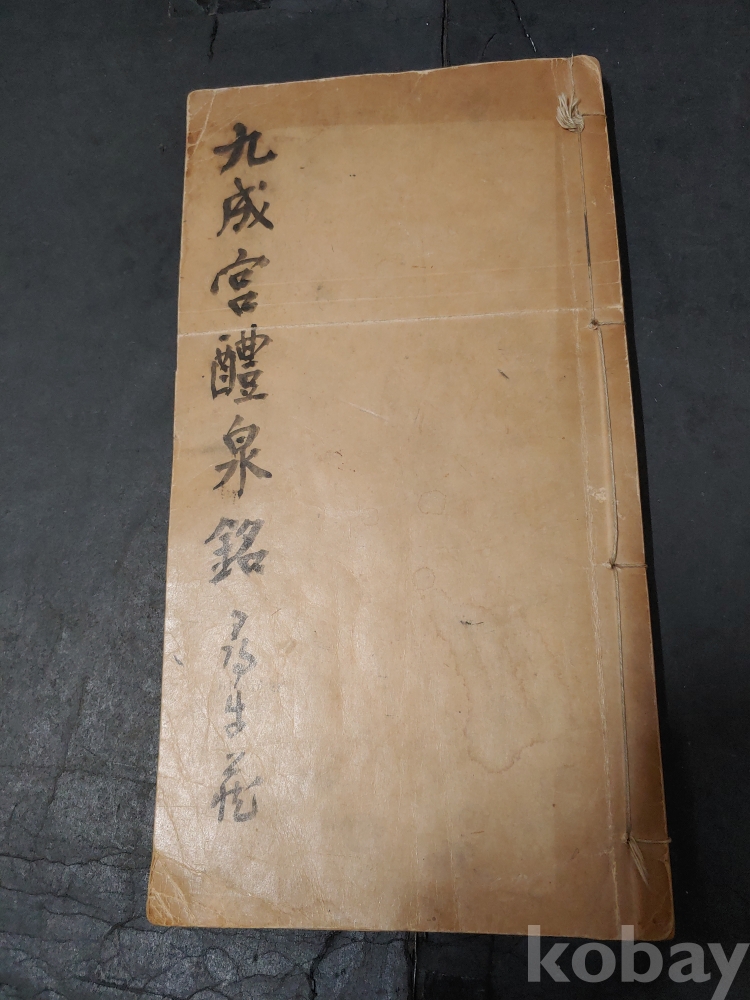 九成宮醴泉銘
kobay